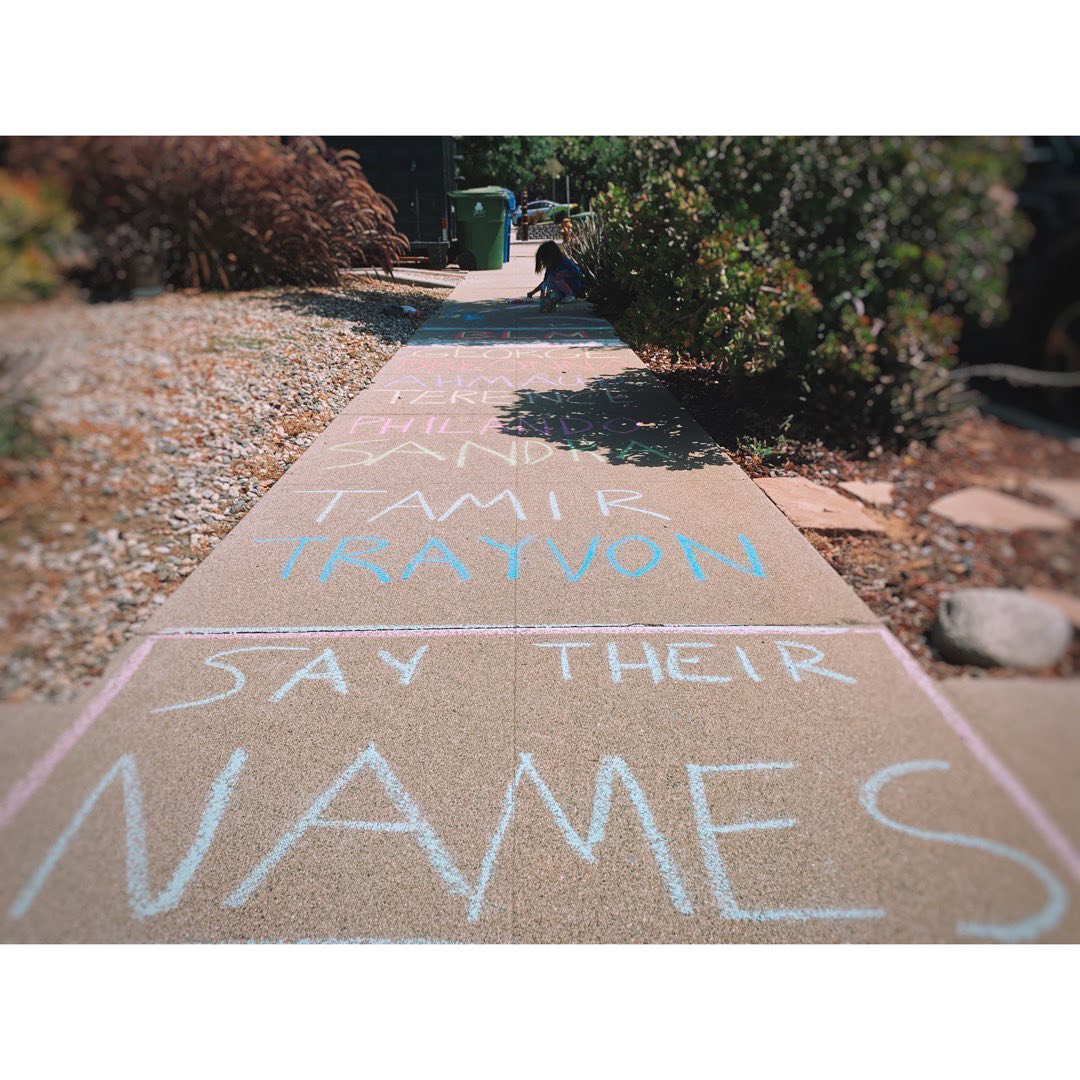 BLM
GEORGE
BREONNA
AHMAUD
TERENCE
PHILANDO
SANDRA
TAMIR
TRAYVON
SAY THEIR
NAMES